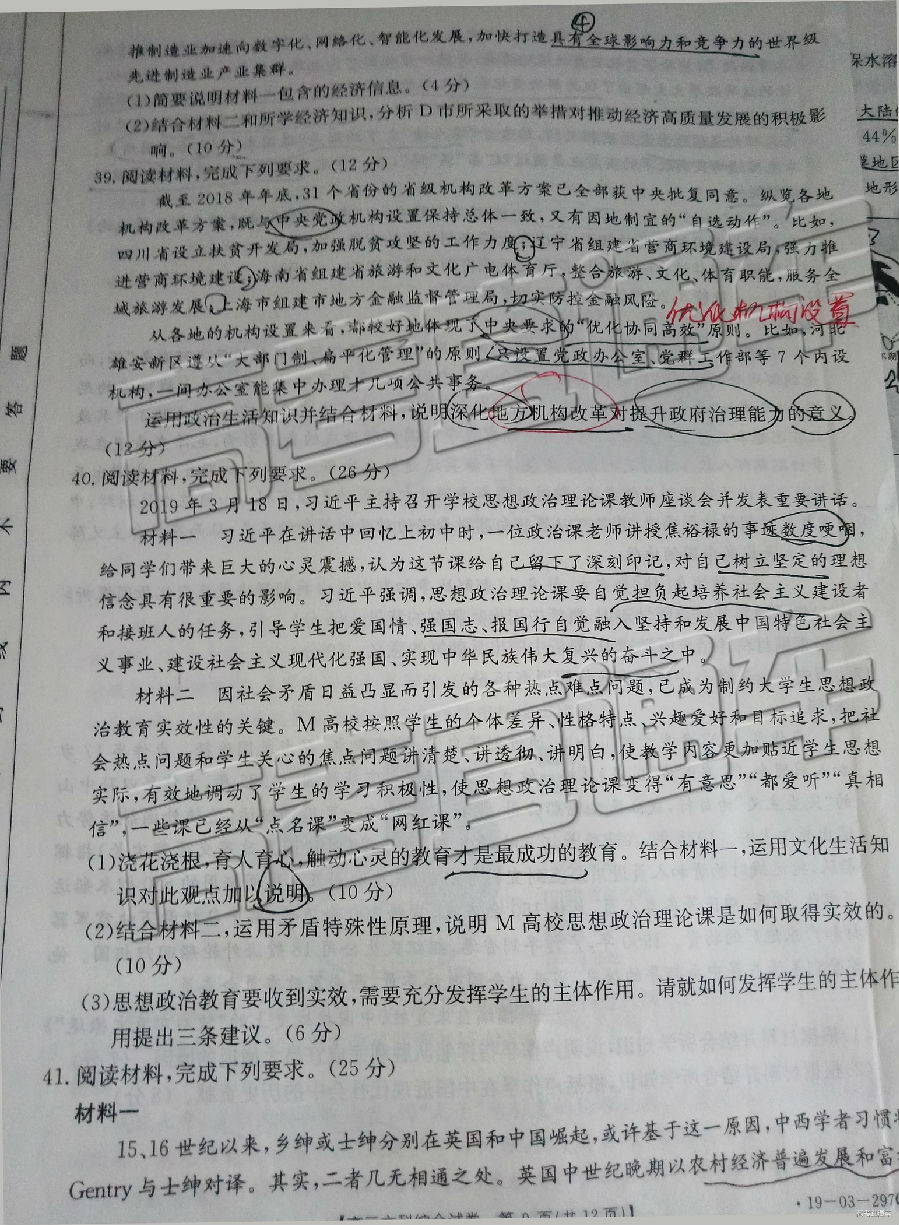 ④
推制造业加速向数字化、网络化、智能化发展,加快打造具有全球影响力和竞争力的世界级
先进制造业产业集群。
(1)简要说明材料一包含的经济信息。(4分)
(2)结合材料二和所学经济知识,分析D市所采取的举措对推动经济高质量发展的积极影
响。(10分)
39.阅读材料,完成下列要求。(12分)
截至2018年年底,31个省份的省级机构改革方案已全部获中央批复同意。纵览各地
机构改革方案,既与中央党政机构设置保持总体一致,又有因地制宜的“自选动作”。比如,
四川省设立扶贫开发局,加强脱贫攻坚的工作力度;辽宁省组建省营商环境建设局,强力推
进营商环境建设;海南省组建省旅游和文化广电体育厅,整合旅游、文化、体育职能,服务全
域旅游发展;上海市组建市地方金融监督管理局,切实防控金融风险。
优化机构设置
从各地的机构设置来看,都较好地体现了中央要求的“优化协同高效”原则。比如,河北
雄安新区遵从“大部门制、扁平化管理”的原则,只设置党政办公室、党群工作部等7个内设
机构,一间办公室能集中办理十几项公共事务。
运用政治生活知识并结合材料,说明深化地方机构改革对提升政府治理能力的意义。
(12分)
40.阅读材料,完成下列要求。(26分)
2019年3月18日,习近平主持召开学校思想政治理论课教师座谈会并发表重要讲话。
材料一 习近平在讲话中回忆上初中时,一位政治课老师讲授焦裕禄的事迹数度哽咽,
给同学们带来巨大的心灵震撼,认为这节课给自己留下了深刻印记,对自己树立坚定的理想
信念具有很重要的影响。习近平强调,思想政治理论课要自觉担负起培养社会主义建设者
和接班人的任务,引导学生把爱国情、强国志、报国行自觉融入坚持和发展中国特色社会主
义事业、建设社会主义现代化强国、实现中华民族伟大复兴的奋斗之中。
材料二 因社会矛盾日益凸显而引发的各种热点难点问题,已成为制约大学生思想政
治教育实效性的关键。M高校按照学生的个体差异、性格特点、兴趣爱好和目标追求,把社
会热点问题和学生关心的焦点问题讲清楚、讲透彻、讲明白,使教学内容更加贴近学生思想
实际,有效地调动了学生的学习积极性,使思想政治理论课变得“有意思”“都爱听”“真相
信”,一些课已经从“点名课”变成“网红课”。
(1)浇花浇根,育人育心,触动心灵的教育才是最成功的教育。结合材料一,运用文化生活知
识对此观点加以说明。(10分)
(2)结合材料二,运用矛盾特殊性原理,说明M高校思想政治理论课是如何取得实效的。
(10分)
(3)思想政治教育要收到实效,需要充分发挥学生的主体作用。请就如何发挥学生的主体作
用提出三条建议。(6分)
41.阅读材料,完成下列要求。(25分)
材料一
15、16世纪以来,乡绅或士绅分别在英国和中国崛起,或许基于这一原因,中西学者习惯
Gentry与士绅对译。其实,二者几无相通之处。英国中世纪晚期以农村经济普遍发展和富
【高三文科综合试卷 第9页(共12页)】
·19-03-297
题
答
要
不
内
线
水溶
大陆
44%
地区
地形
高考直通车
高考直通车